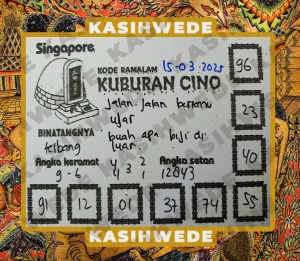 KASIHWEDE
Singapore
KODE RAMALAN 15-03-2025
KUBURAN CINO
96
jalan. jalan bertemu
ular
23
BINATANGNYA
buah apa biji di
luar.
40
Angka keramat 4 3 2 Angka setan
9-6 4 3 1 12843
91 12 01 37 74 55
KASIHWEDE